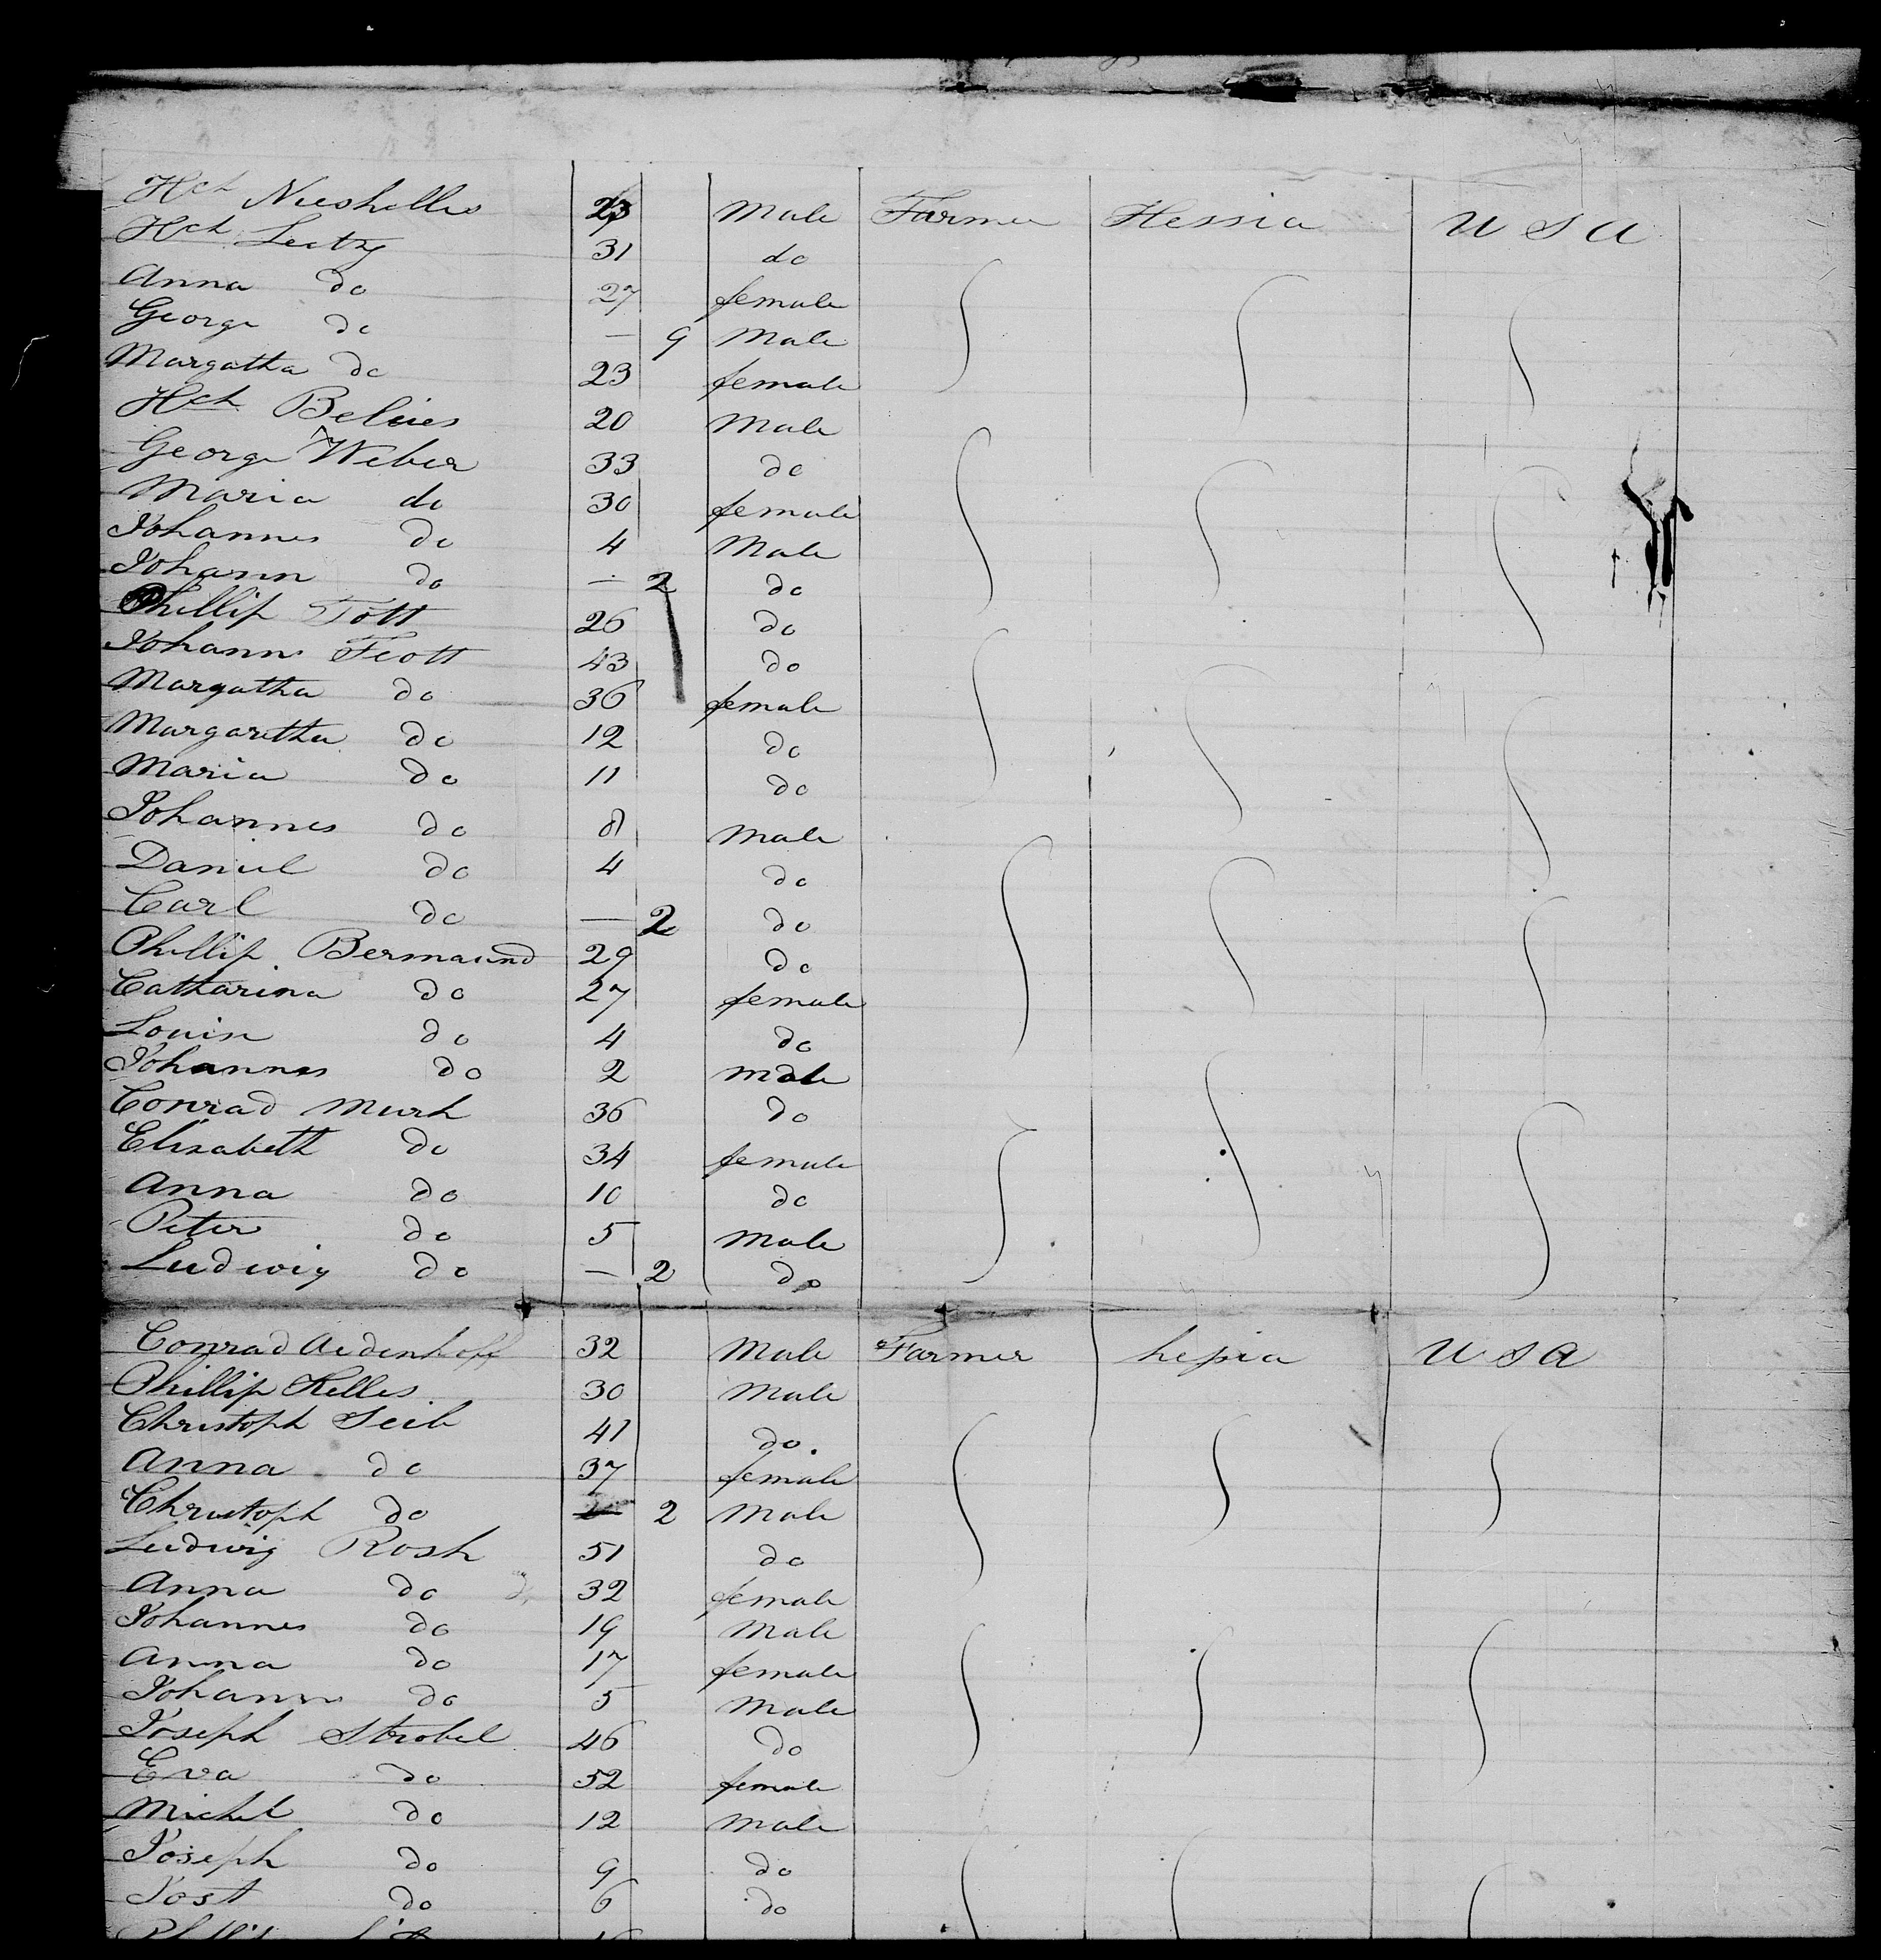 Hch Nusholles 23 Male Farmer Hessia U S A
Hch Leitz 31 do
Anna do 27 female
George do — 9 Male
Margatha do 23 female
Hch Belies 20 Male
George Weber 33 do
Maria do 30 female
Johannes do 4 Male
Johann do — 2 do
Phillip Tott 26 do
Johann Tiott 43 do
Margatha do 36 female
Margaretha do 12 do
Maria do 11 do
Johannes do 8 Male
Daniel do 4 do
Carl do — 2 do
Phillip Bermaund 29 do
Catharina do 27 female
Louise do 4 do
Johannes do 2 Male
Conrad Murh 36 do
Elisabeth do 34 female
Anna do 10 do
Peter do 5 Male
Ludwig do — 2 do
Conrad Aedenhoff 32 Male Farmer hessia U S A
Phillip Kelles 30 Male
Christoph Seib 41 do
Anna do 37 female
Christoph do 2 Male
Ludwig Rosh 51 do
Anna do 32 female
Johannes do 19 Male
Anna do 17 female
Johann do 5 Male
Joseph Strobel 46 do
Eva do 52 female
Michel do 12 Male
Joseph do 9 do
Jost do 6 do